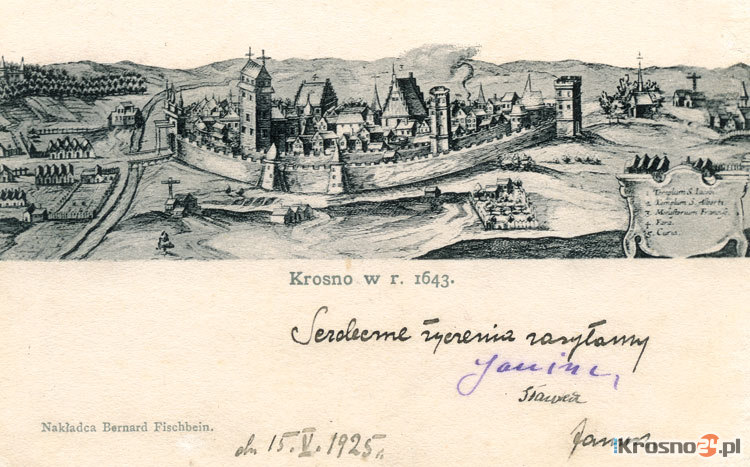 Templum S.
2. Templum S. Alberti
3. Monasterium Francisc.
4. Fara
5. Curia.
Krosno w r. 1643.
Serdeczne życzenia zasyłamy
Janina,
Sławka
Nakładca Bernard Fischbein.
dn 15.V.1925r.
Krosno24.pl